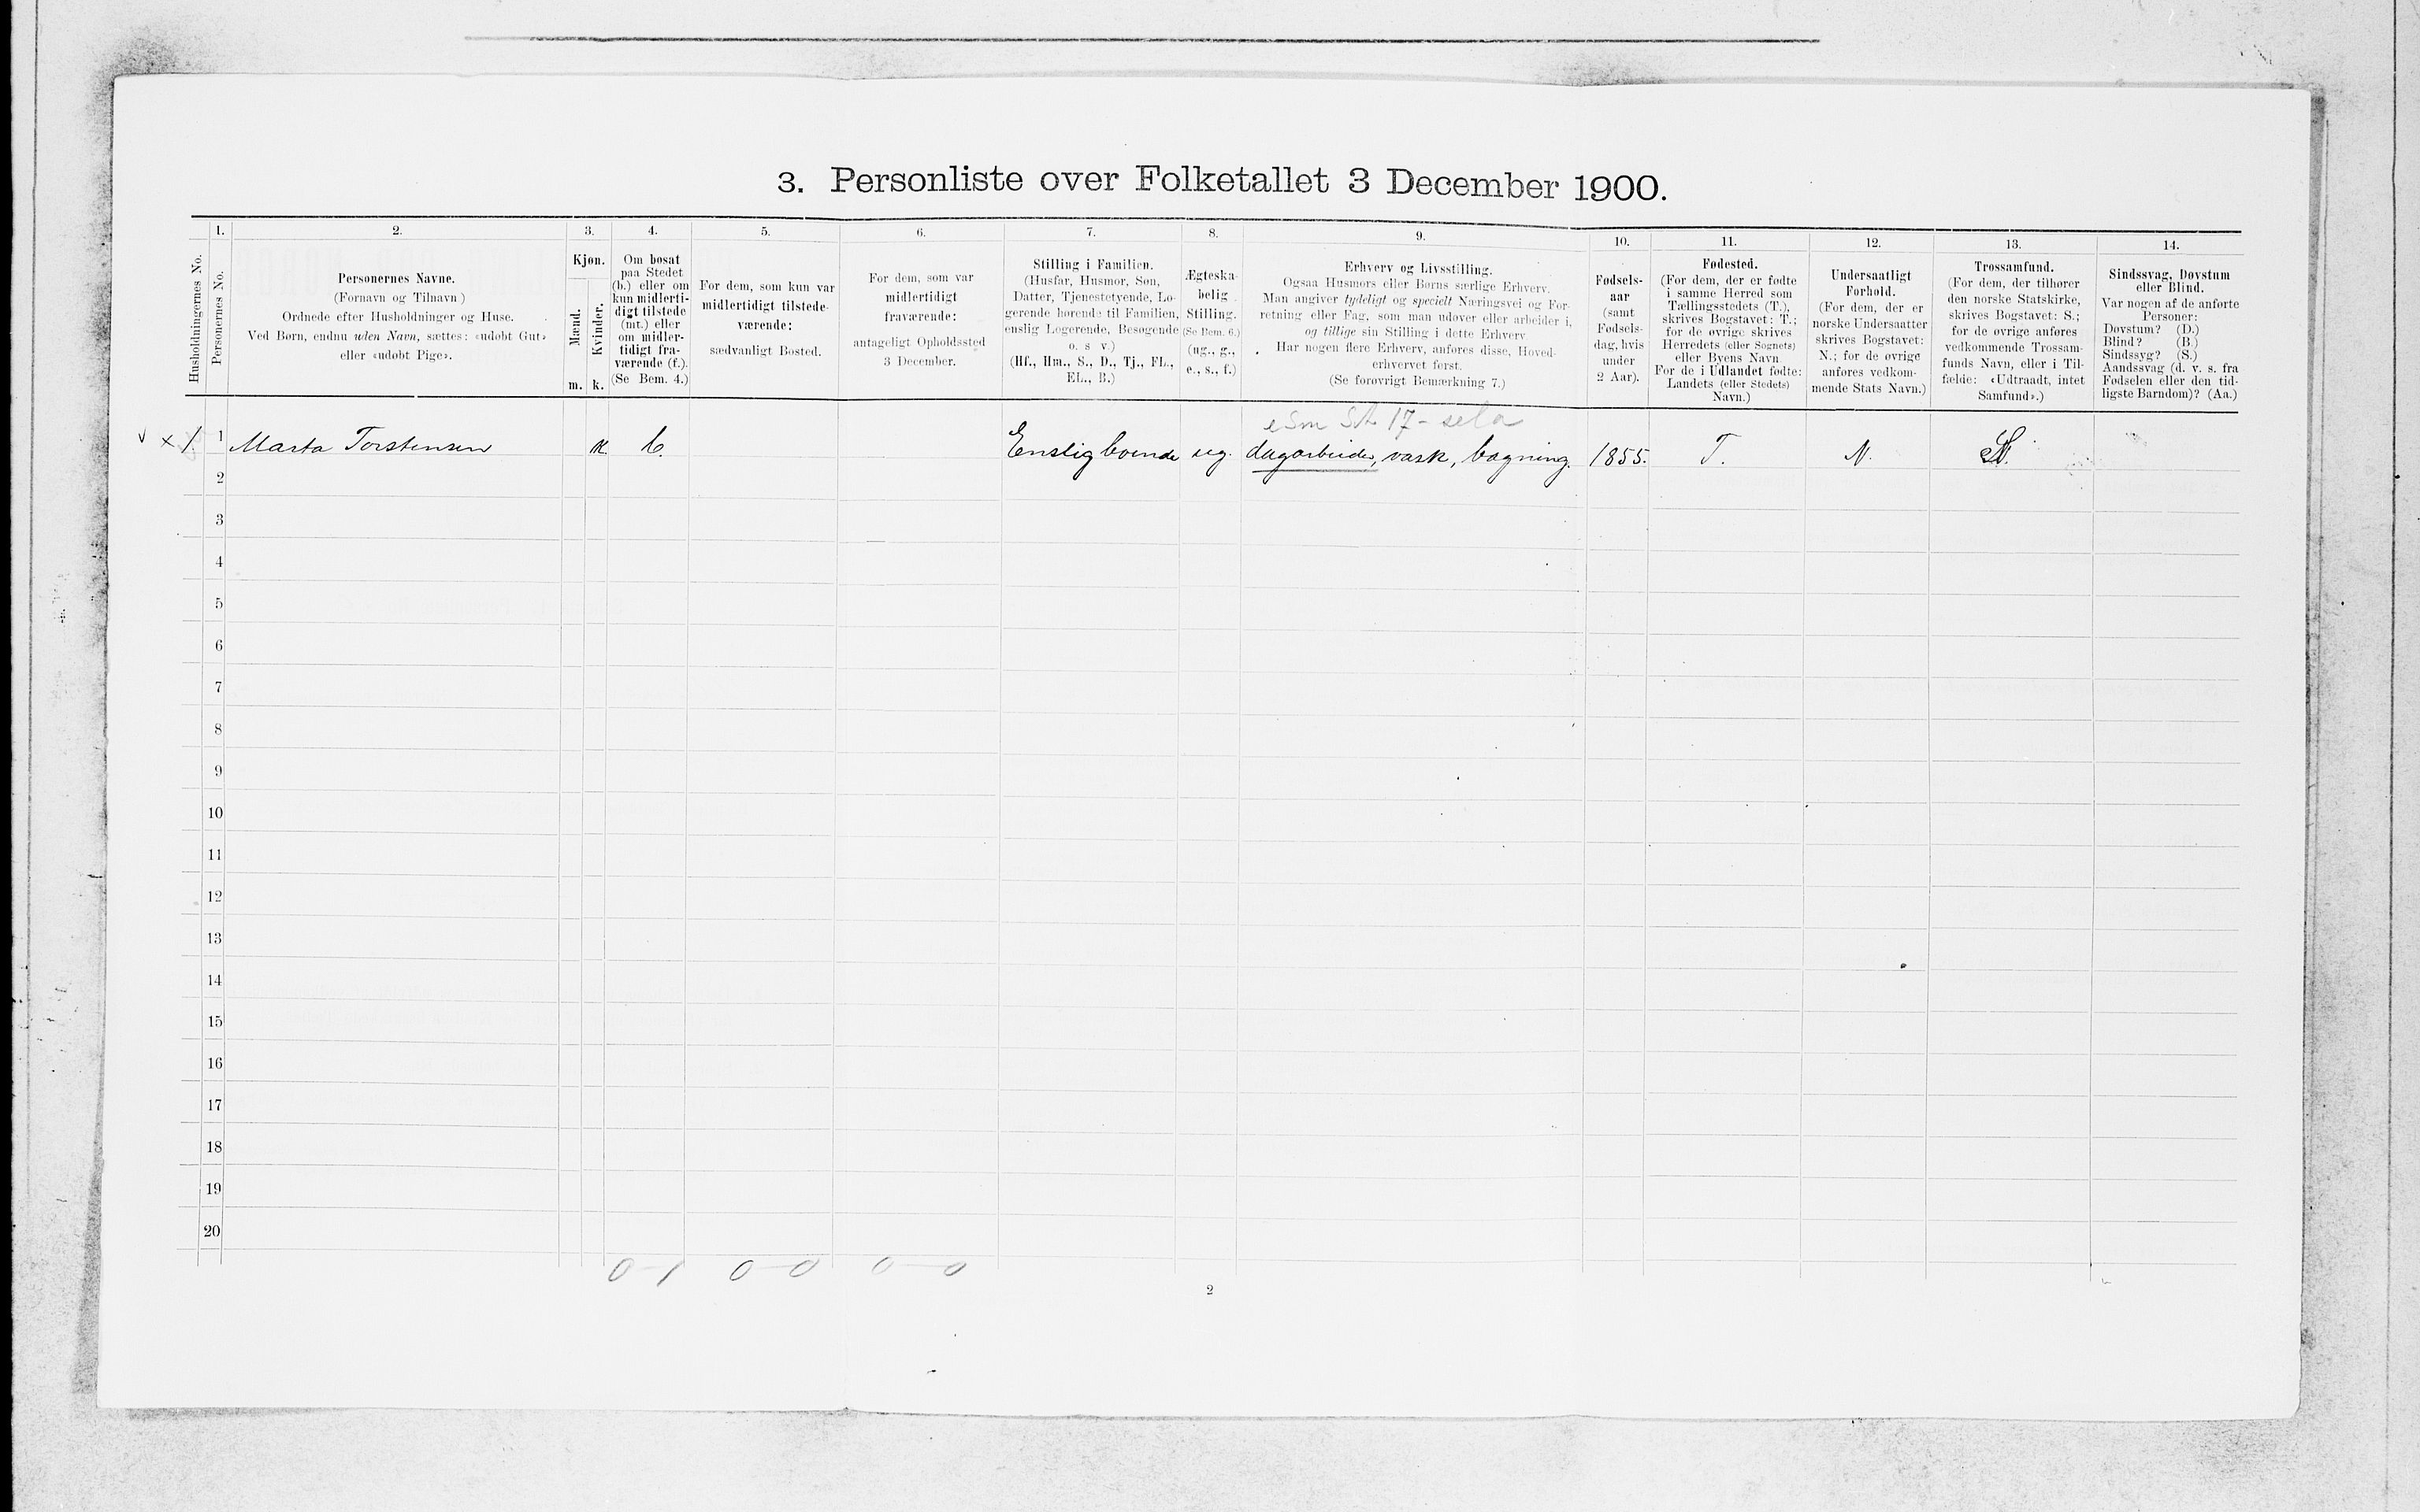 3. Personliste over Folketallet 3 December 1900.
Husholdningernes No.
1.
Personernes No.
2.
Personernes Navne.
(Fornavn og Tilnavn)
Ordnede efter Husholdninger og Huse.
Ved Børn, endnu uden Navn, sættes: «udøbt Gut»
eller «udøbt Pige».
3.
Kjøn.
Mænd.
Kvinder.
m. k.
4.
Om bosat
paa Stedet
(b.) eller om
kun midlerti-
digt tilstede
(mt.) eller
om midler-
tidigt fra-
værende (f.).
(Se Bem. 4.)
5.
For dem, som kun var
midlertidigt tilstede-
værende:
sædvanligt Bosted.
6.
For dem, som var
midlertidigt
fraværende:
antageligt Opholdssted
3 December.
7.
Stilling i Familien.
(Husfar, Husmor, Søn,
Datter, Tjenestetyende, Lo-
gerende hørende til Familien,
enslig Logerende, Besøgende
o. s. v.)
(Hf., Hm., S., D., Tj., FL.,
EL., B.)
8.
Ægteska-
belig
Stilling.
(Se Bem. 6.)
(ug., g.,
e., s., f.)
9.
Erhverv og Livsstilling.
Ogsaa Husmors eller Børns særlige Erhverv.
Man angiver tydeligt og specielt Næringsvei og For-
retning eller Fag, som man udøver eller arbeider i,
og tillige sin Stilling i dette Erhverv.
Har nogen flere Erhverv, anføres disse, Hoved-
erhvervet først.
(Se forøvrigt Bemærkning 7.)
10.
Fødsels-
aar
(samt
Fødsels-
dag, hvis
under
2 Aar).
11.
Fødested.
(For dem, der er fødte
i samme Herred som
Tællingsstedets (T.),
skrives Bogstavet: T.;
for de øvrige skrives
Herredets (eller Sognets)
eller Byens Navn.
For de i Udlandet fødte:
Landets (eller Stedets)
Navn.)
12.
Undersaatligt
Forhold.
(For dem, der er
norske Undersaatter
skrives Bogstavet:
N.; for de øvrige
anføres vedkom-
mende Stats Navn.)
13.
Trossamfund.
(For dem, der tilhører
den norske Statskirke,
skrives Bogstavet: S.;
for de øvrige anføres
vedkommende Trossam-
funds Navn, eller i Til-
fælde: «Udtraadt, intet
Samfund».)
14.
Sindssvag, Døvstum
eller Blind.
Var nogen af de anførte
Personer:
Døvstum? (D.)
Blind? (B.)
Sindssyg? (S.)
Aandssvag (d. v. s. fra
Fødselen eller den tid-
ligste Barndom)? (Aa.)
x 1. 1 Marta Torstensen k. b. Enslig boende ug. dagarbeide, vask, bagning. 1855. T. N. S.
2
3
4
5
6
7
8
9
10
11
12
13
14
15
16
17
18
19
20
0-1 0-0 0-0
2